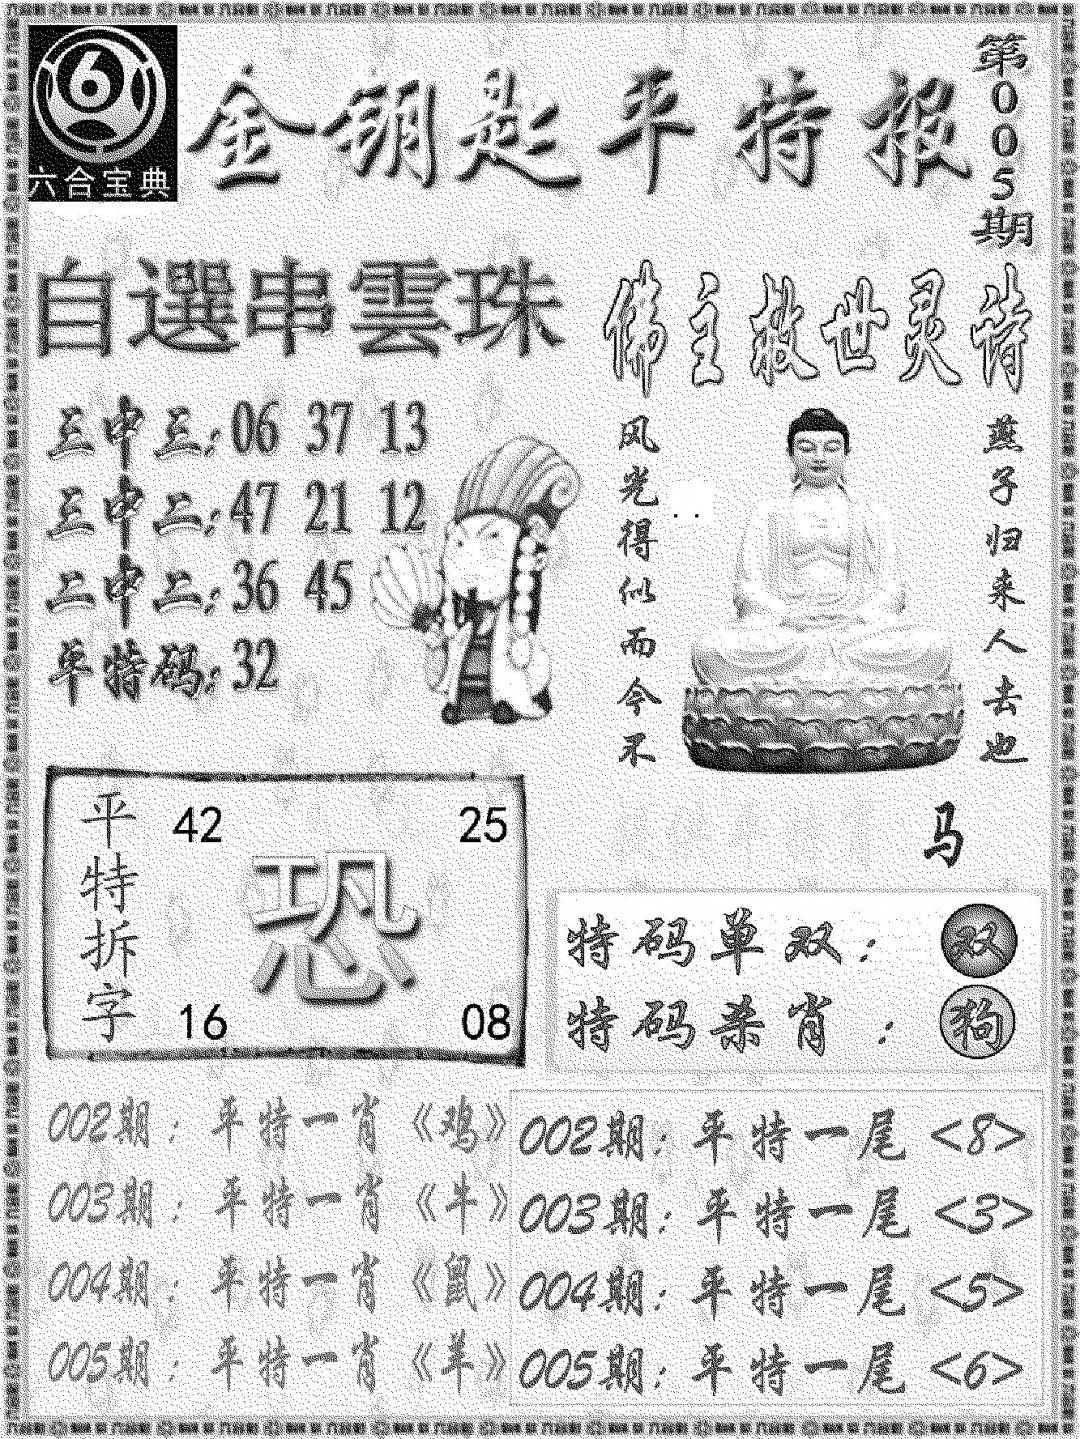 六合宝典
金钥匙平特报
第005期
自選串雲珠
三中三:06 37 13
三中二:47 21 12
二中二:36 45
单特码:32
佛主救世灵诗
燕子归来人去也
风光得似而今不
马
平特拆字
42 25
恐
16 08
特码单双: 双
特码杀肖: 狗
002期:平特一肖《鸡》
003期:平特一肖《牛》
004期:平特一肖《鼠》
005期:平特一肖《羊》
002期:平特一尾<8>
003期:平特一尾<3>
004期:平特一尾<5>
005期:平特一尾<6>